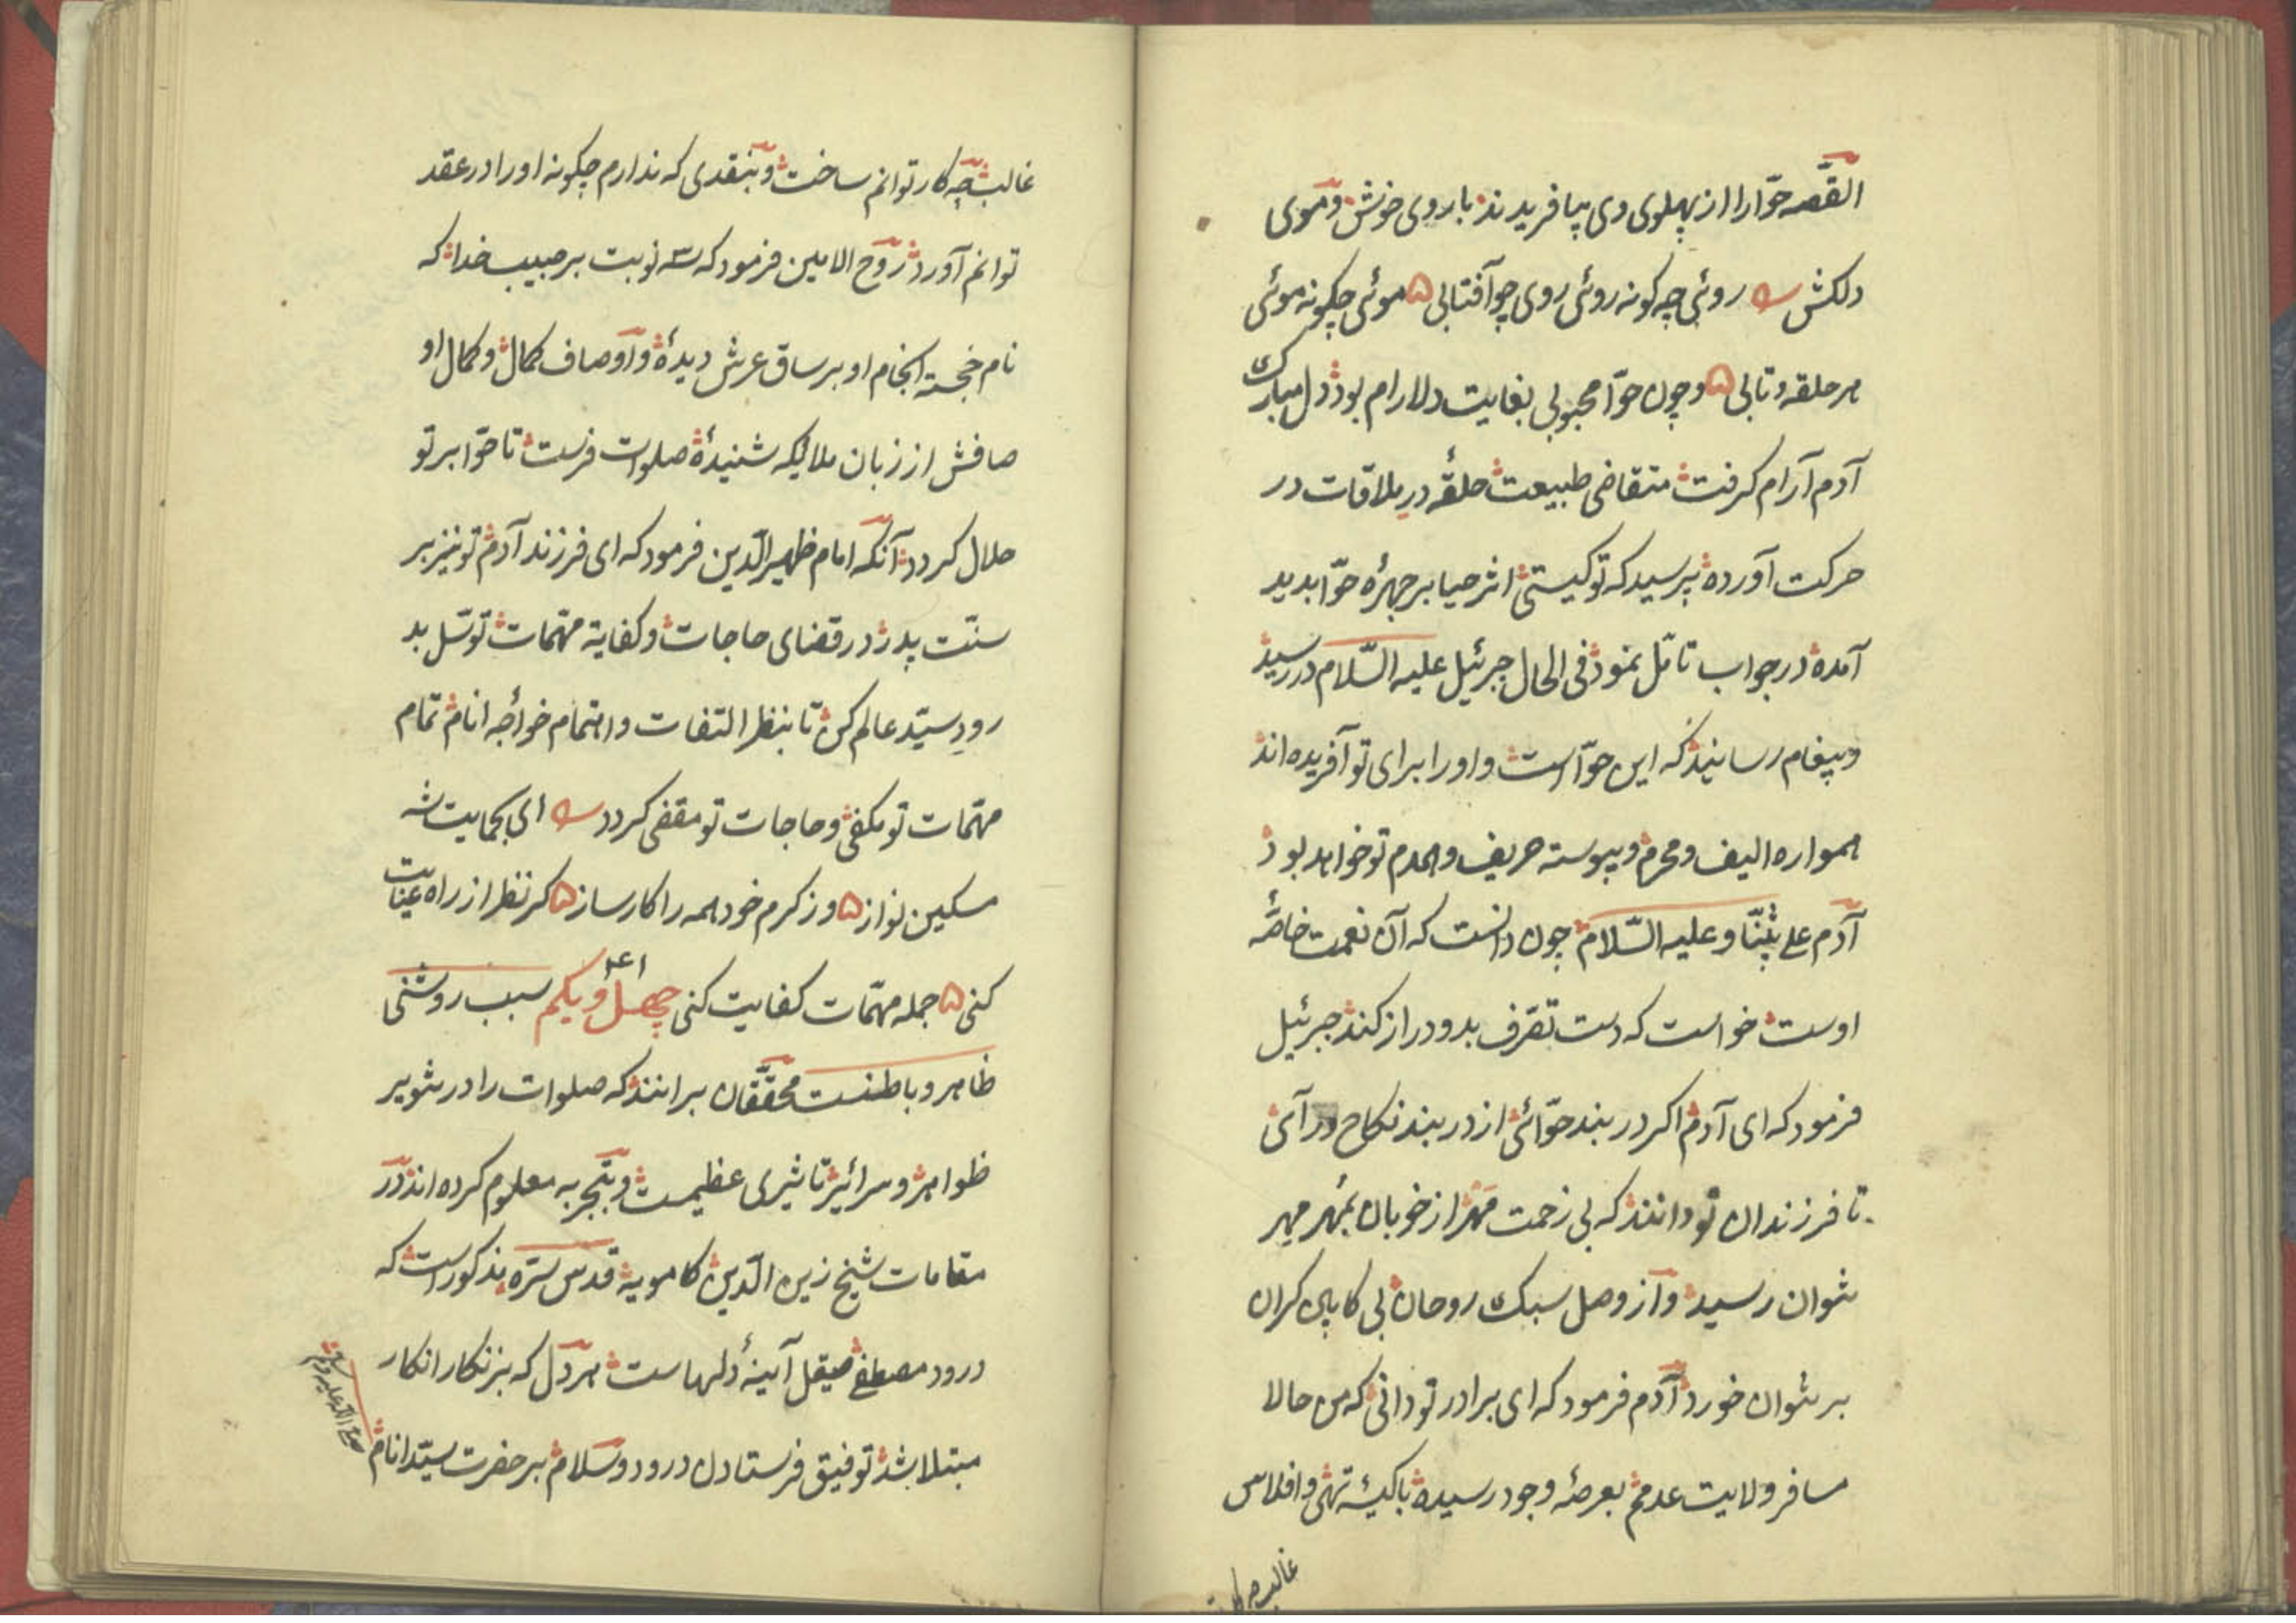 القصّه حوّا را از پهلوی وی بیافریدند با روی خوش و موی
دلکش روئی چه کونه روئی روی چو آفتابی موئی چکونه موئی
هر حلقه و تابی و چون حوّا محبوبی بغایت دلارام بود دل مبارک
آدم آرام کرفت متقاضی طبیعت حلقهٔ در ملاقات در
حرکت آورده پرسید که تو کیستی اثر حیا بر چهرهٔ حوّا بدید
آمده در جواب تأمّل نمود فی الحال جبرئیل علیه السّلام در رسید
و پیغام رسانید که این حوّا است و او را برای تو آفریده اند
همواره الیف و محرم و پیوسته حریف و همدم تو خواهد بود
آدم علی نبیّنا و علیه السّلام چون دانست که آن نعمت خاصّهٔ
اوست خواست که دست تصّرف بدو دراز کند جبرئیل
فرمود که ای آدم اکر در بند حوّائی از در بند نکاح در آی
تا فرزندان تو دانند که بی زحمت مَهر از خوبان بمُهر مِهر
نتوان رسید و از وصل سبک روحان بی کابین کران
بر نتوان خورد آدم فرمود که ای برادر تو دانی که من حالا
مسافر ولایت عدمم بعرصهٔ وجود رسیده با کیسهٔ تهی و افلاس
غالب چه کار
غالب چه کار توانم ساخت و بنقدی که ندارم چکونه او را در عقد
توانم آورد روح الامین فرمود که سه نوبت بر حبیب خدا که
نام خجسته انجام او بر ساق عرش دیدهٔ و اوصاف کمال و کمال او
صافش از زبان ملائکه شنیدهٔ صلوات فرست تا حوّا بر تو
حلال کردد آنکه امام ظهیر الدّین فرمود که ای فرزند آدم تو نیز بر
سنّت پدر در قضای حاجات و کفایة مهمّات توسّل بد
رودِ سیّد عالم کن تا بنظر التفات و اهتمام خواجهٔ انام تمام
مهمّات تو مکفی و حاجات تو مقضی کردد ای بحمایت شه
مسکین نواز وز کرم خود همه را کارساز کر نظر از راه عنایت
کنی جمله مهمّات کفایت کنی چهل و یکم سبب روشنی
ظاهر و باطنست محقّقان برانند که صلوات را در تنویر
ظواهر و سرائر تأثیری عظیمست و بتجربه معلوم کرده اند در
مقامات شیخ زین الدّین کامویه قدس سرّه مذکور است که
درود مصطفی صیقل آینهٔ دلهاست هر دل که بزنکار انکار
مبتلا شد توفیق فرستادن درود و سلام بر حضرت سیّد انام
صلی الله علیه و سلم